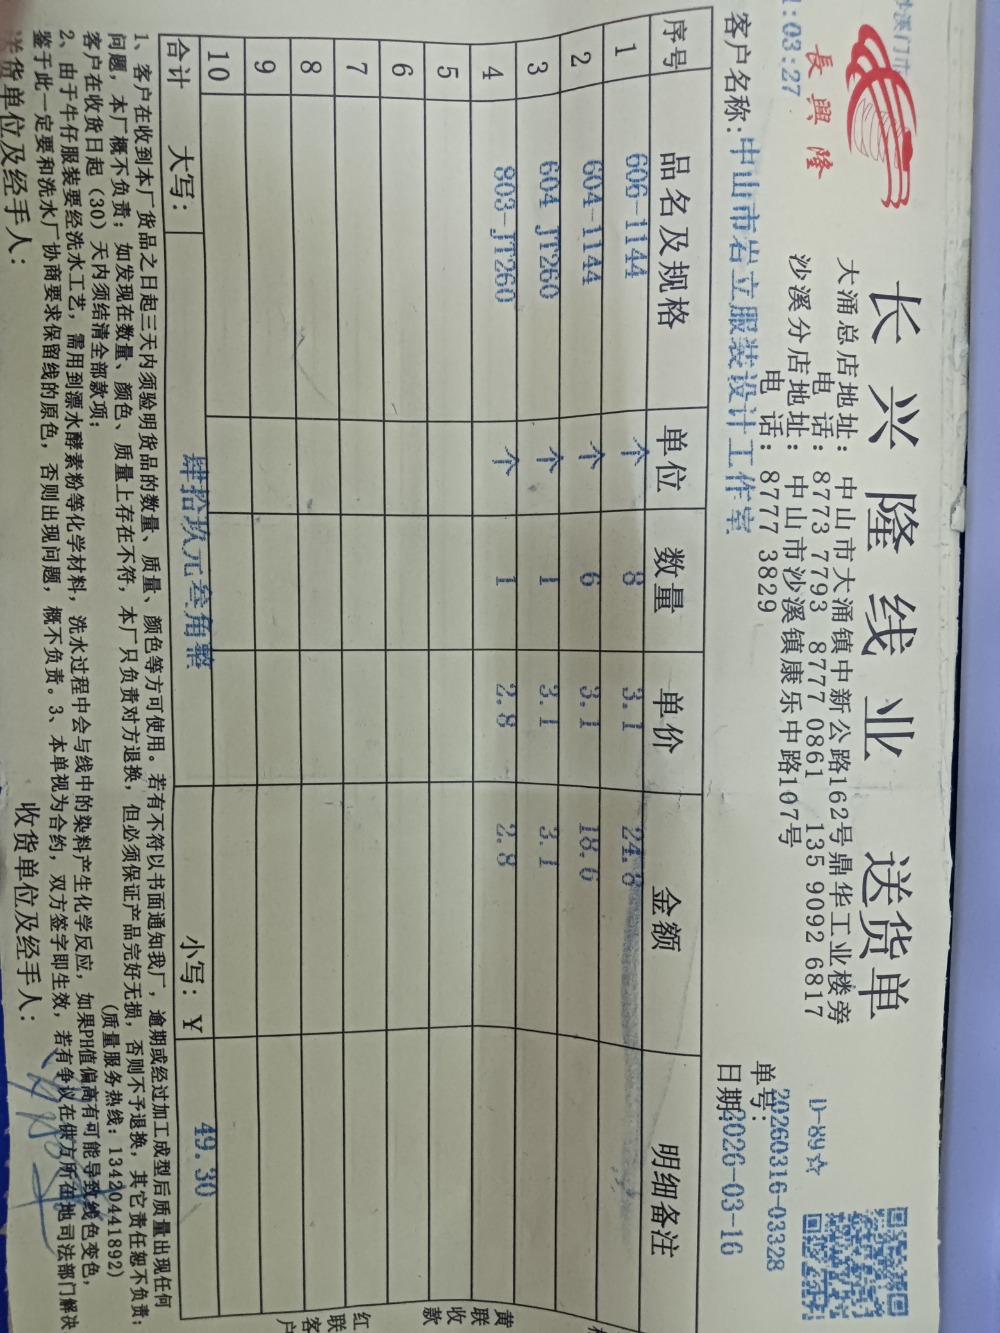 沙溪门市
1:03:27
長興隆
长兴隆线业 送货单
大涌总店地址: 中山市大涌镇中新公路162号鼎华工业楼旁
电 话: 8773 7793 8777 0861 135 9092 6817
沙溪分店地址: 中山市沙溪镇康乐中路107号
电 话: 8777 3829
D-89☆
单号: 20260316-03328
客户名称: 中山市岩立服装设计工作室 日期: 2026-03-16
序号 品名及规格 单位 数量 单价 金额 明细备注
1 606-1144 个 8 3.1 24.8
2 604-1144 个 6 3.1 18.6
3 604 JT260 个 1 3.1 3.1
4 803-JT260 个 1 2.8 2.8
5
6
7
8
9
10
合计 大写: 肆拾玖元叁角整 小写: ¥ 49.30
1、客户在收到本厂货品之日起三天内须验明货品的数量、质量、颜色等方可使用。若有不符以书面通知我厂,逾期或经过加工成型后质量出现任何
问题,本厂概不负责;如发现在数量、颜色、质量上存在不符,本厂只负责对方退换,但必须保证产品完好无损,否则不予退换,其它责任恕不负责;
客户在收货日起(30)天内须结清全部款项; (质量服务热线:13420441892)
2、由于牛仔服装要经洗水工艺,需用到漂水酵素粉等化学材料,洗水过程中会与线中的染料产生化学反应,如果PH值偏高有可能导致线色变色,
鉴于此一定要和洗水厂协商要求保留线的原色,否则出现问题,概不负责。3、本单视为合约,双方签字即生效,若有争议在供方所在地司法部门解决
送货单位及经手人: 收货单位及经手人:
黄联收款
红联客户